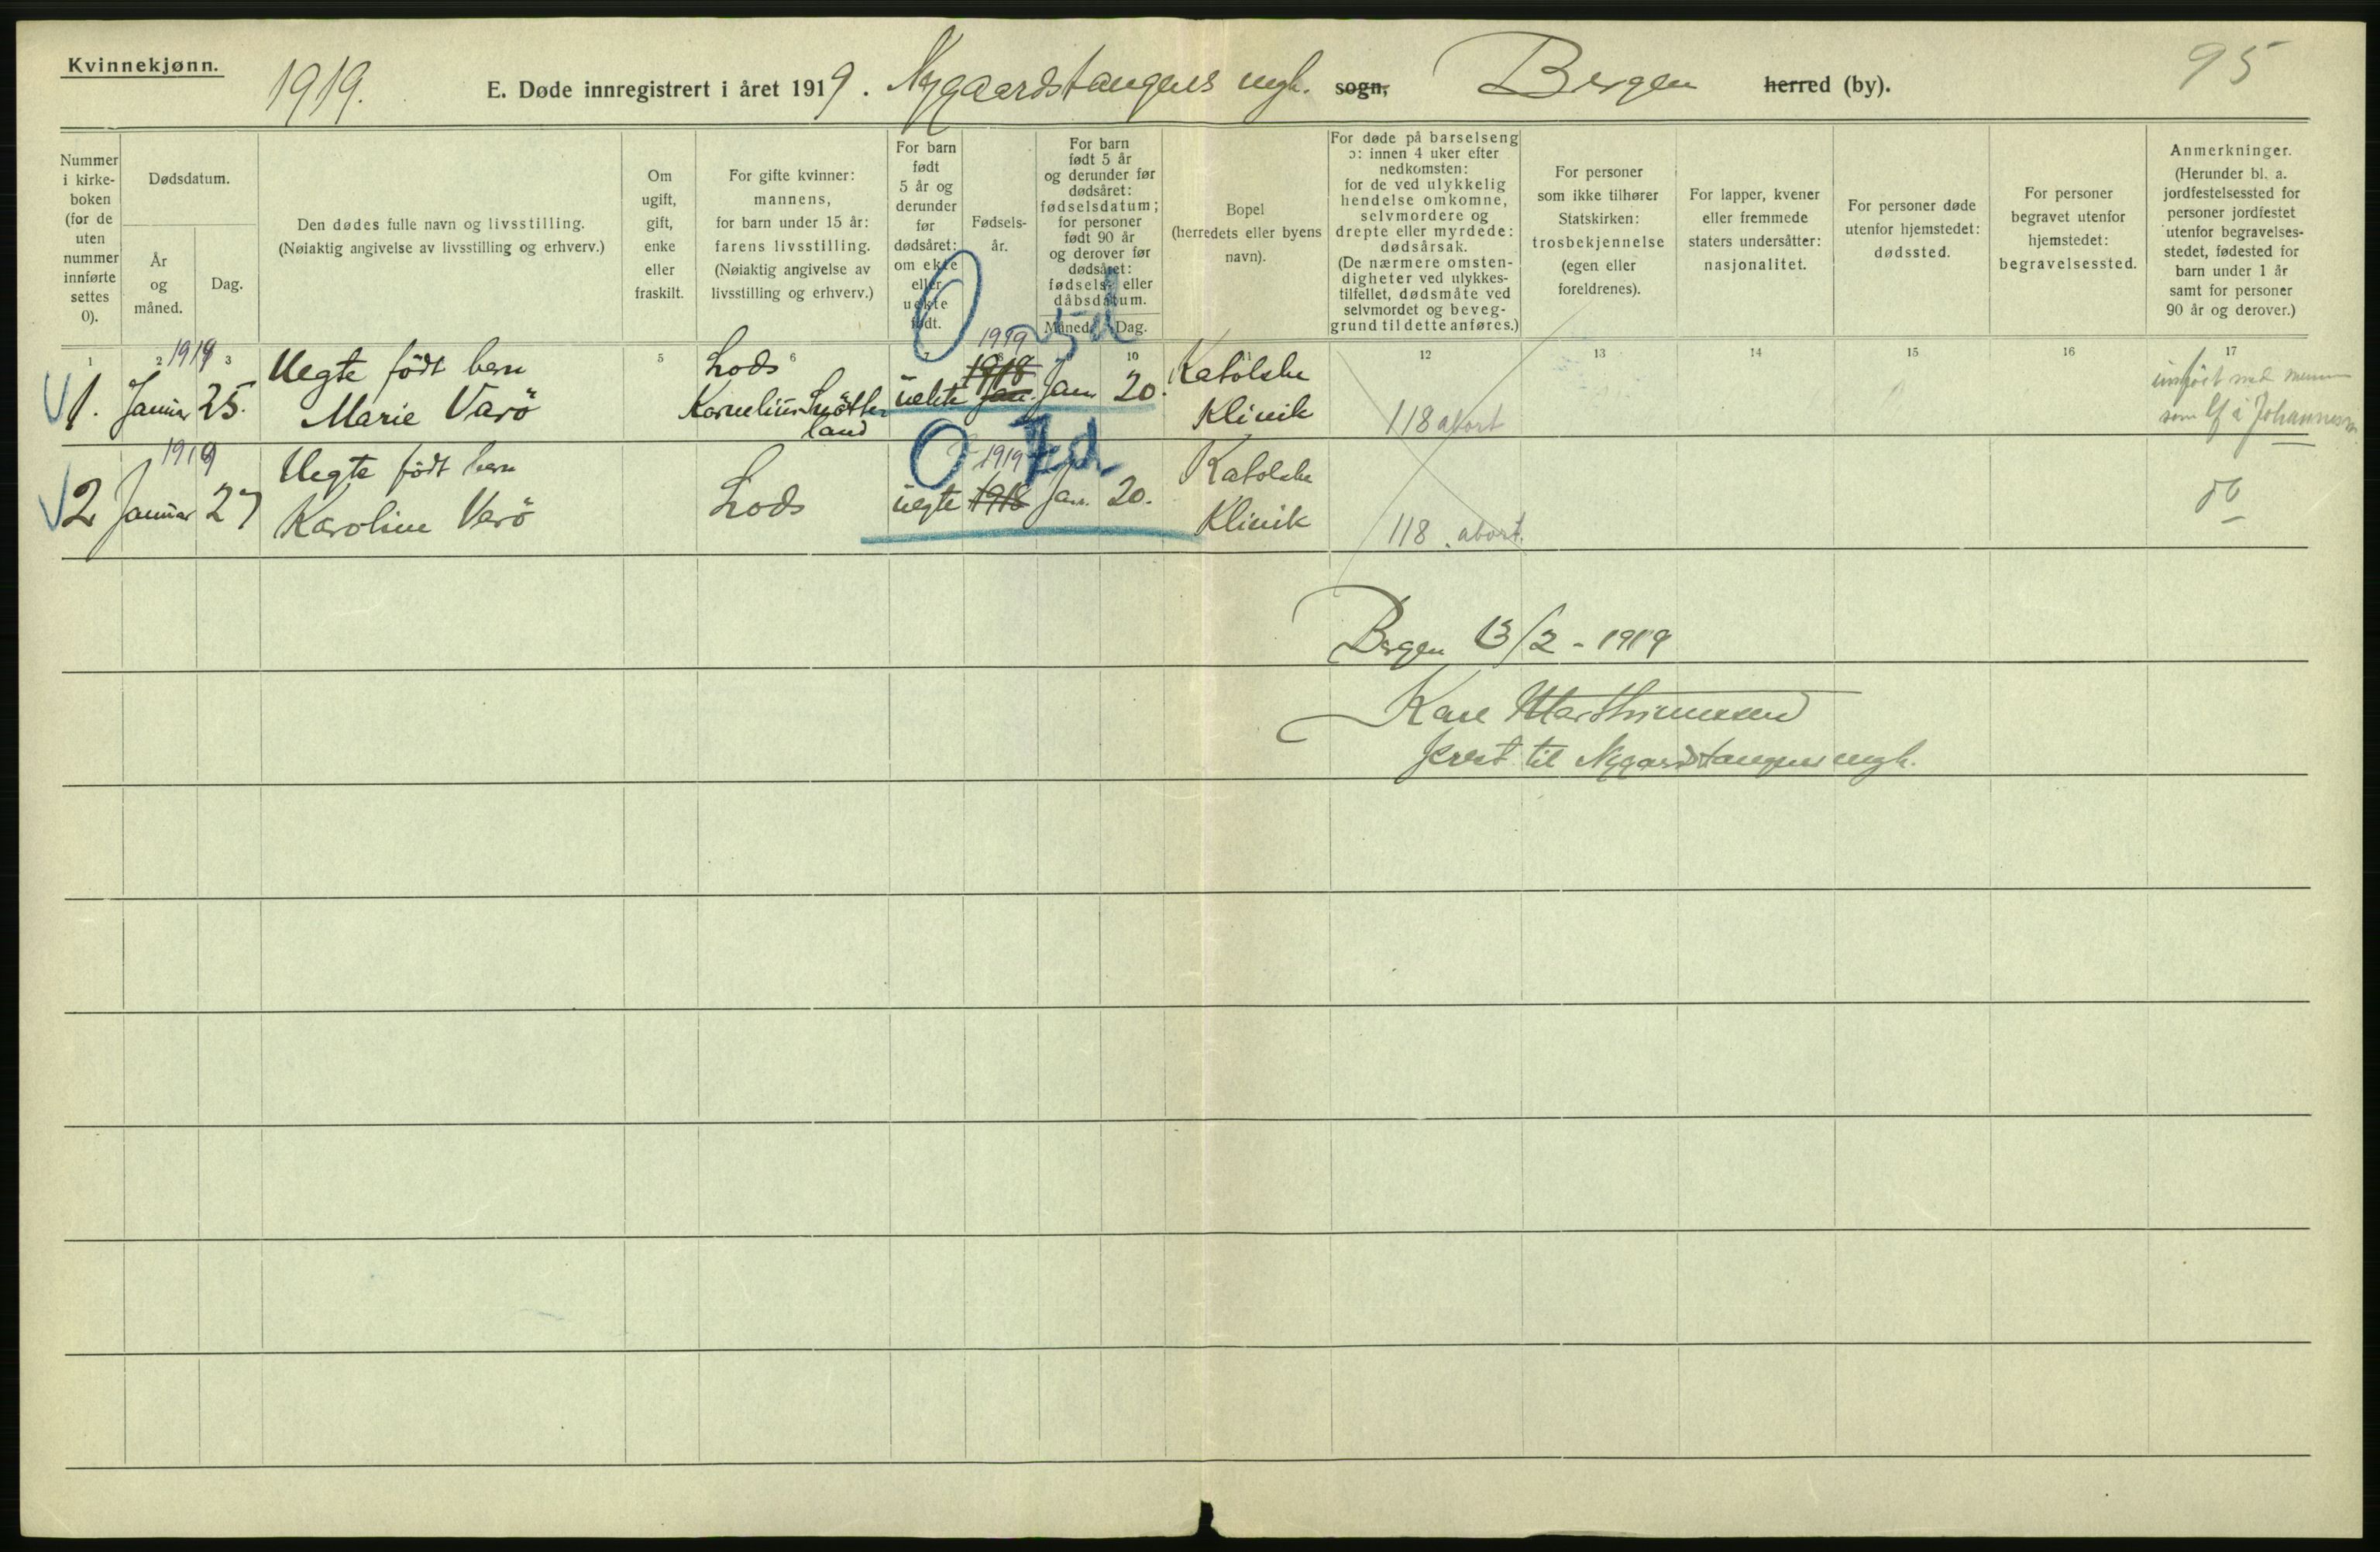 Kvinnekjønn.
1919.
E. Døde innregistrert i året 1919. Nygaardstangens mgh. sogn, Bergen herred (by).
95
Nummer i kirke-boken (for de uten nummer innførte settes 0).
Dødsdatum.
År og måned.
Dag.
Den dødes fulle navn og livsstilling.
(Nøiaktig angivelse av livsstilling og erhverv.)
Om ugift, gift, enke eller fraskilt.
For gifte kvinner: mannens, for barn under 15 år: farens livsstilling. (Nøiaktig angivelse av livsstilling og erhverv.)
For barn født 5 år og derunder før dødsåret: om ekte eller uekte født.
Fødsels-år.
For barn født 5 år og derunder før dødsåret: fødselsdatum; for personer født 90 år og derover før dødsåret: fødsels- eller dåbsdatum.
Måned. Dag.
Bopel (herredets eller byens navn).
For døde på barselseng ɔ: innen 4 uker efter nedkomsten: for de ved ulykkelig hendelse omkomne, selvmordere og drepte eller myrdede: dødsårsak. (De nærmere omsten-digheter ved ulykkes-tilfellet, dødsmåte ved selvmordet og beveg-grund til dette anføres.)
For personer som ikke tilhører Statskirken: trosbekjennelse (egen eller foreldrenes).
For lapper, kvener eller fremmede staters undersåtter: nasjonalitet.
For personer døde utenfor hjemstedet: dødssted.
For personer begravet utenfor hjemstedet: begravelsessted.
Anmerkninger. (Herunder bl. a. jordfestelsessted for personer jordfestet utenfor begravelses-stedet, fødested for barn under 1 år samt for personer 90 år og derover.)
1 2 3 5 6 7 8 10 11 12 13 14 15 16 17
1. 1919 Januar 25. Uegte født barn Marie Varö Lods Kornelius uekte 0 1919 1918 Jan. Jan 20. 5 d Katolske Klinik 118 abort som Johannes
2 1919 Januar 27 Uegte født barn Karoline Varö Lods uegte 0 1919 1918 Jan. 20. 7 d. Katolske Klinik 118 abort. do
Bergen 13/2 - 1919
Karl Marthinussen
prest til Nygaardstangens mgh.